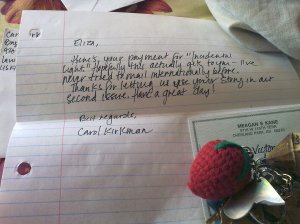 Eliza,
Here's your payment for "Incidental
Light." Hopefully this actually gets to you – I've
never tried to mail internationally before.
Thanks for letting us use your story in our
second issue. Have a great day!
Best regards,
Carol Kirkman
MEAGAN S KANE
Victoria